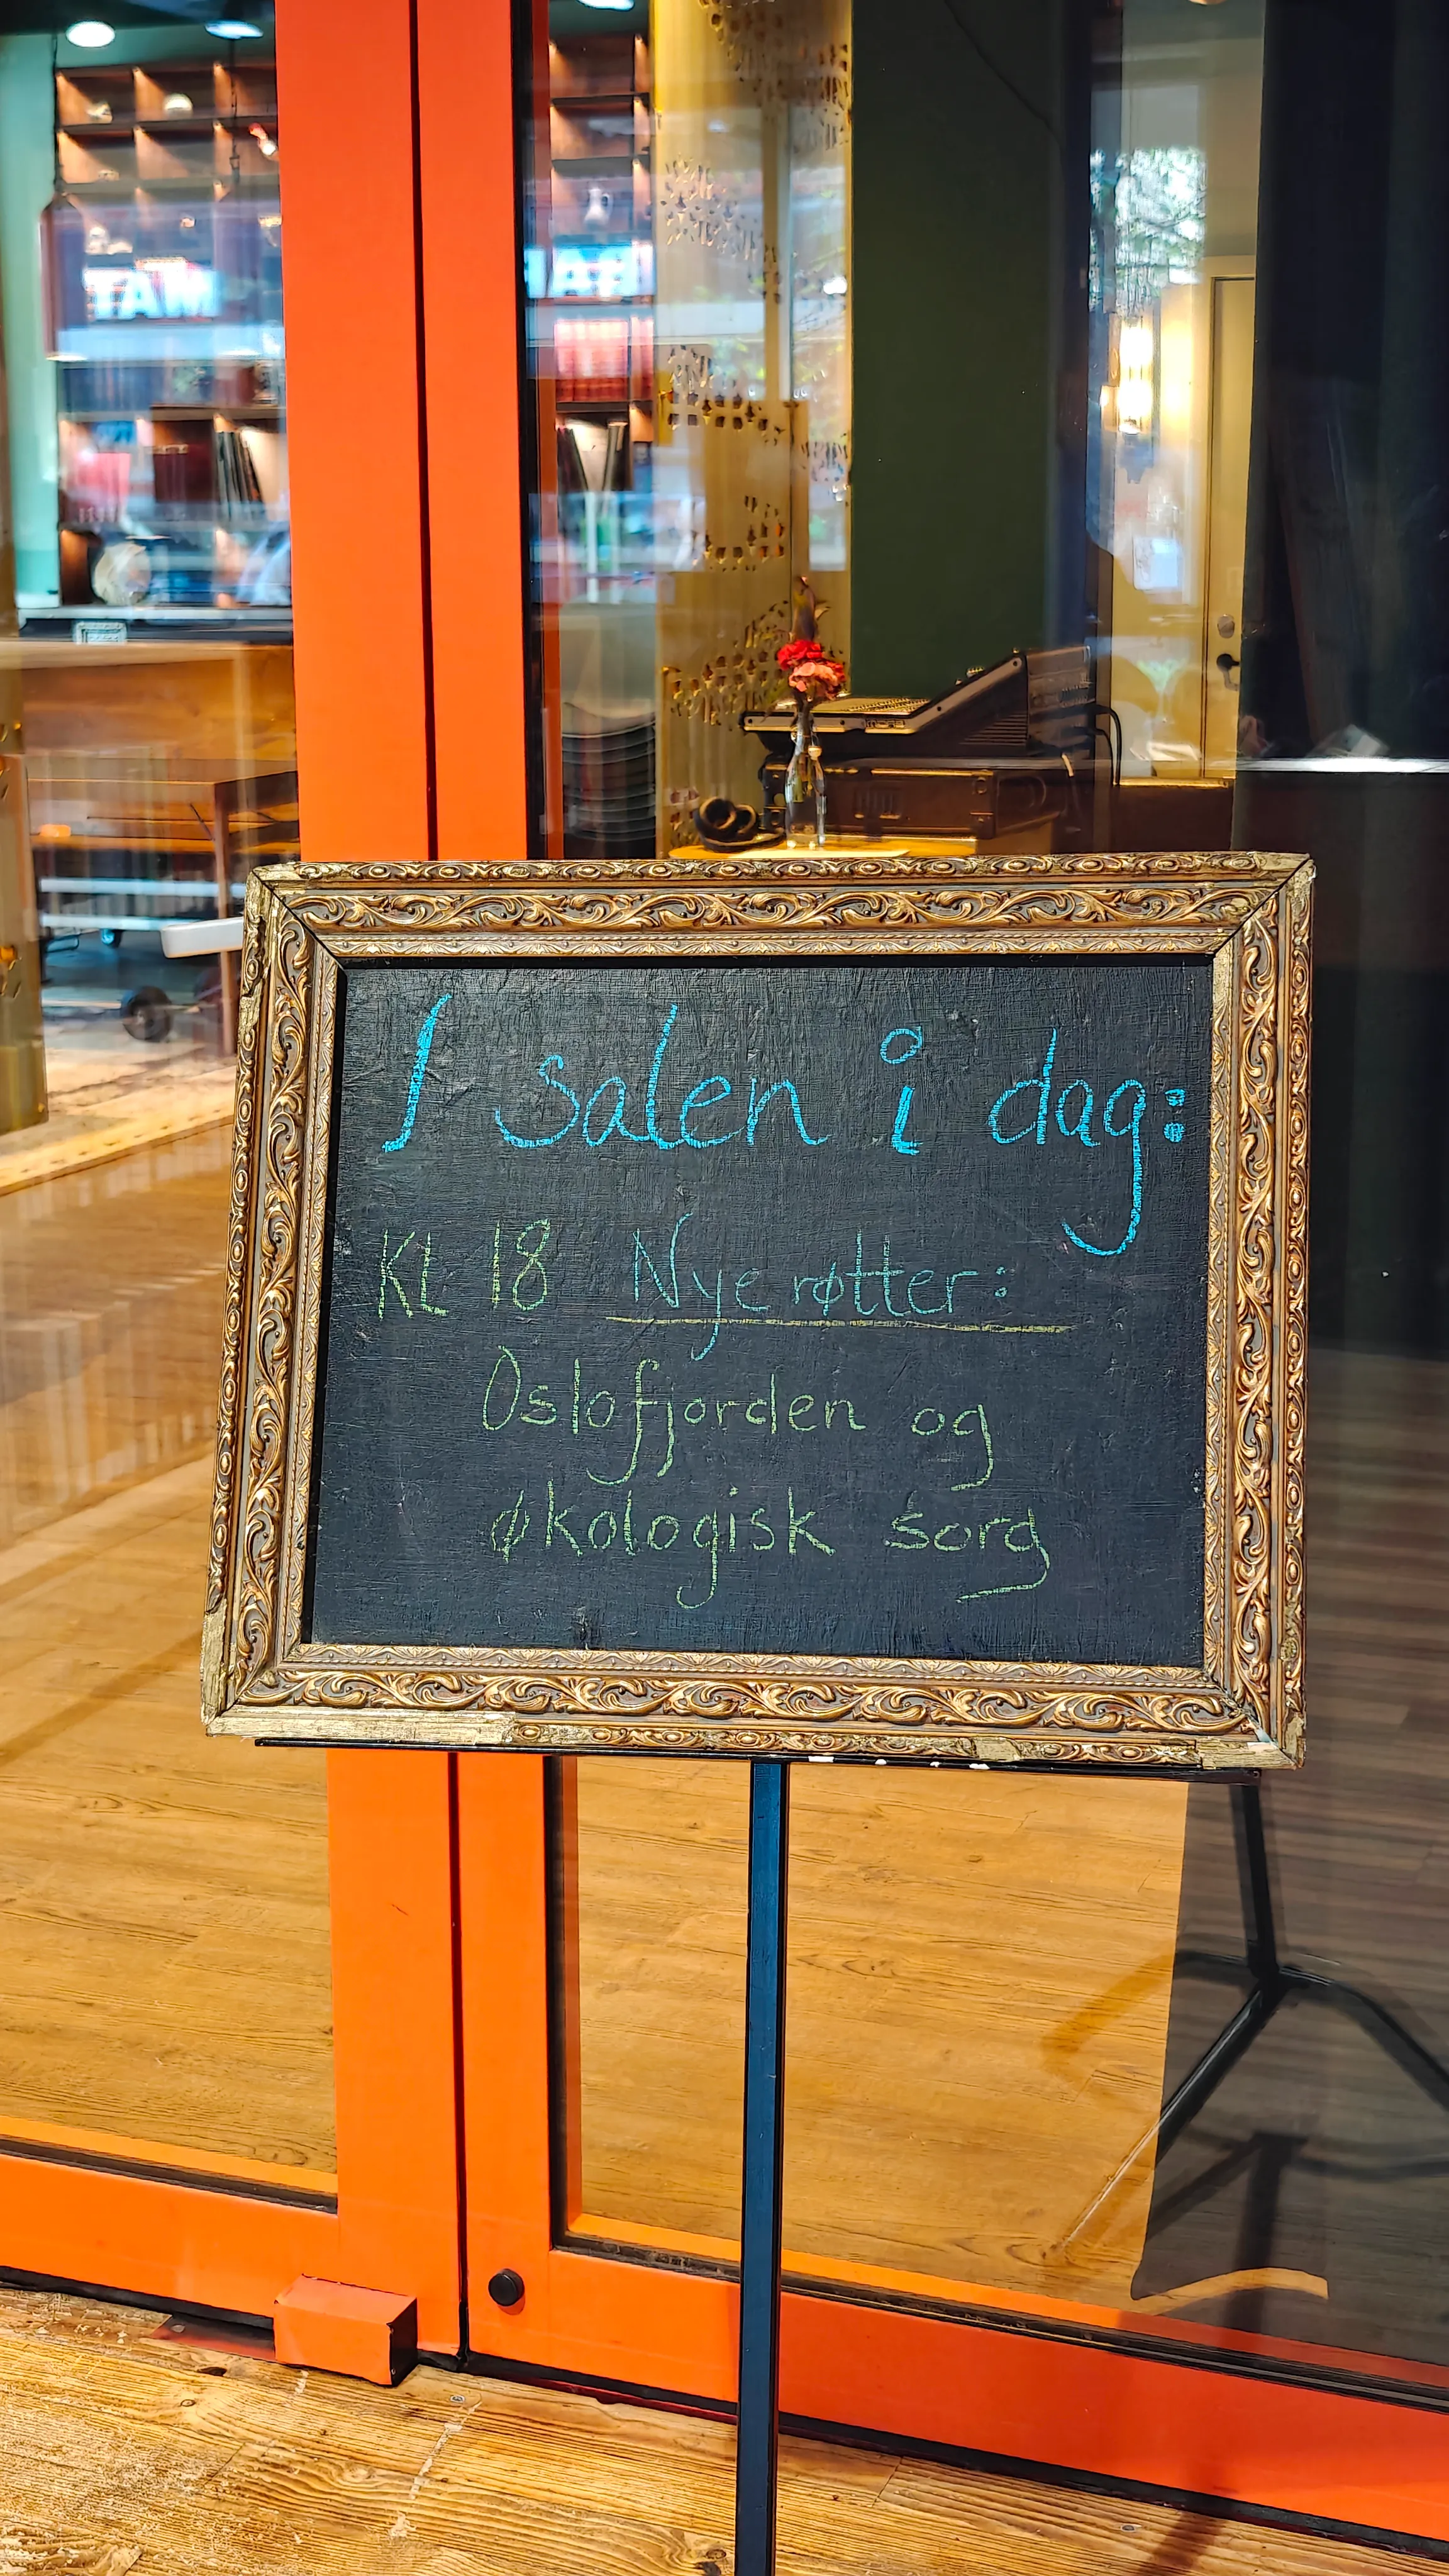 I salen i dag:
KL 18 Nye røtter:
Oslofjorden og
økologisk sorg